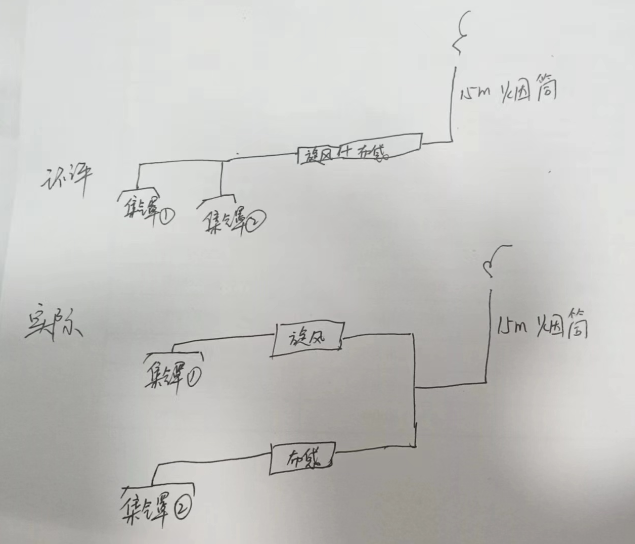 15m 烟筒
旋风+布袋
环评
集气罩①
集气罩②
实际
15m 烟筒
旋风
集气罩①
布袋
集气罩②